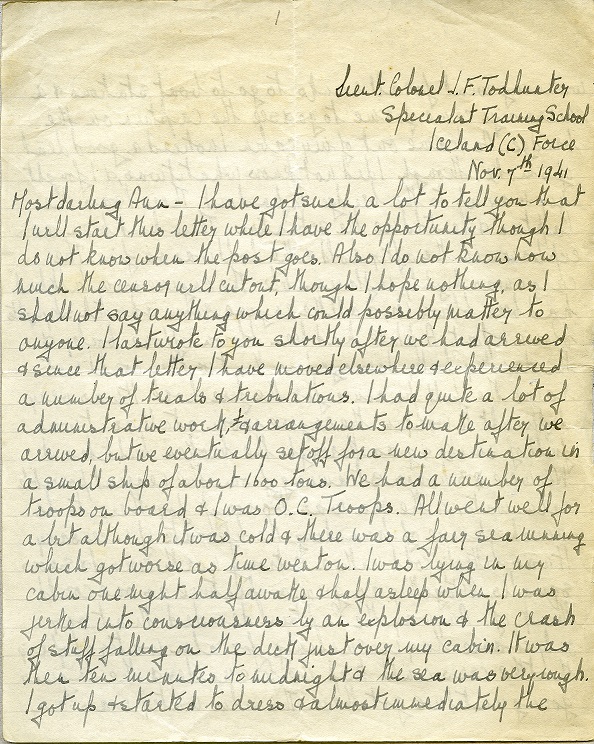 1
Lieut. Colonel J. F. Todhunter
Specialist Training School
Iceland (C) Force
Nov. 7th 1941
Most darling Ann - I have got such a lot to tell you that
I will start this letter while I have the opportunity though I
do not know when the post goes. Also I do not know how
much the censor will cut out, though I hope nothing, as I
shall not say anything which could possibly matter to
anyone. I last wrote to you shortly after we had arrived
& since that letter I have moved elsewhere & experienced
a number of trials & tribulations. I had quite a lot of
administrative work, & arrangements to make after we
arrived, but we eventually set off for a new destination in
a small ship of about 1600 tons. We had a number of
troops on board & I was O.C. Troops. All went well for
a bit although it was cold & there was a fair sea running
which got worse as time went on. I was lying in my
cabin one night half awake & half asleep when I was
jerked into consciousness by an explosion & the crash
of stuff falling on the deck just over my cabin. It was
then ten minutes to midnight & the sea was very rough.
I got up & started to dress & almost immediately the